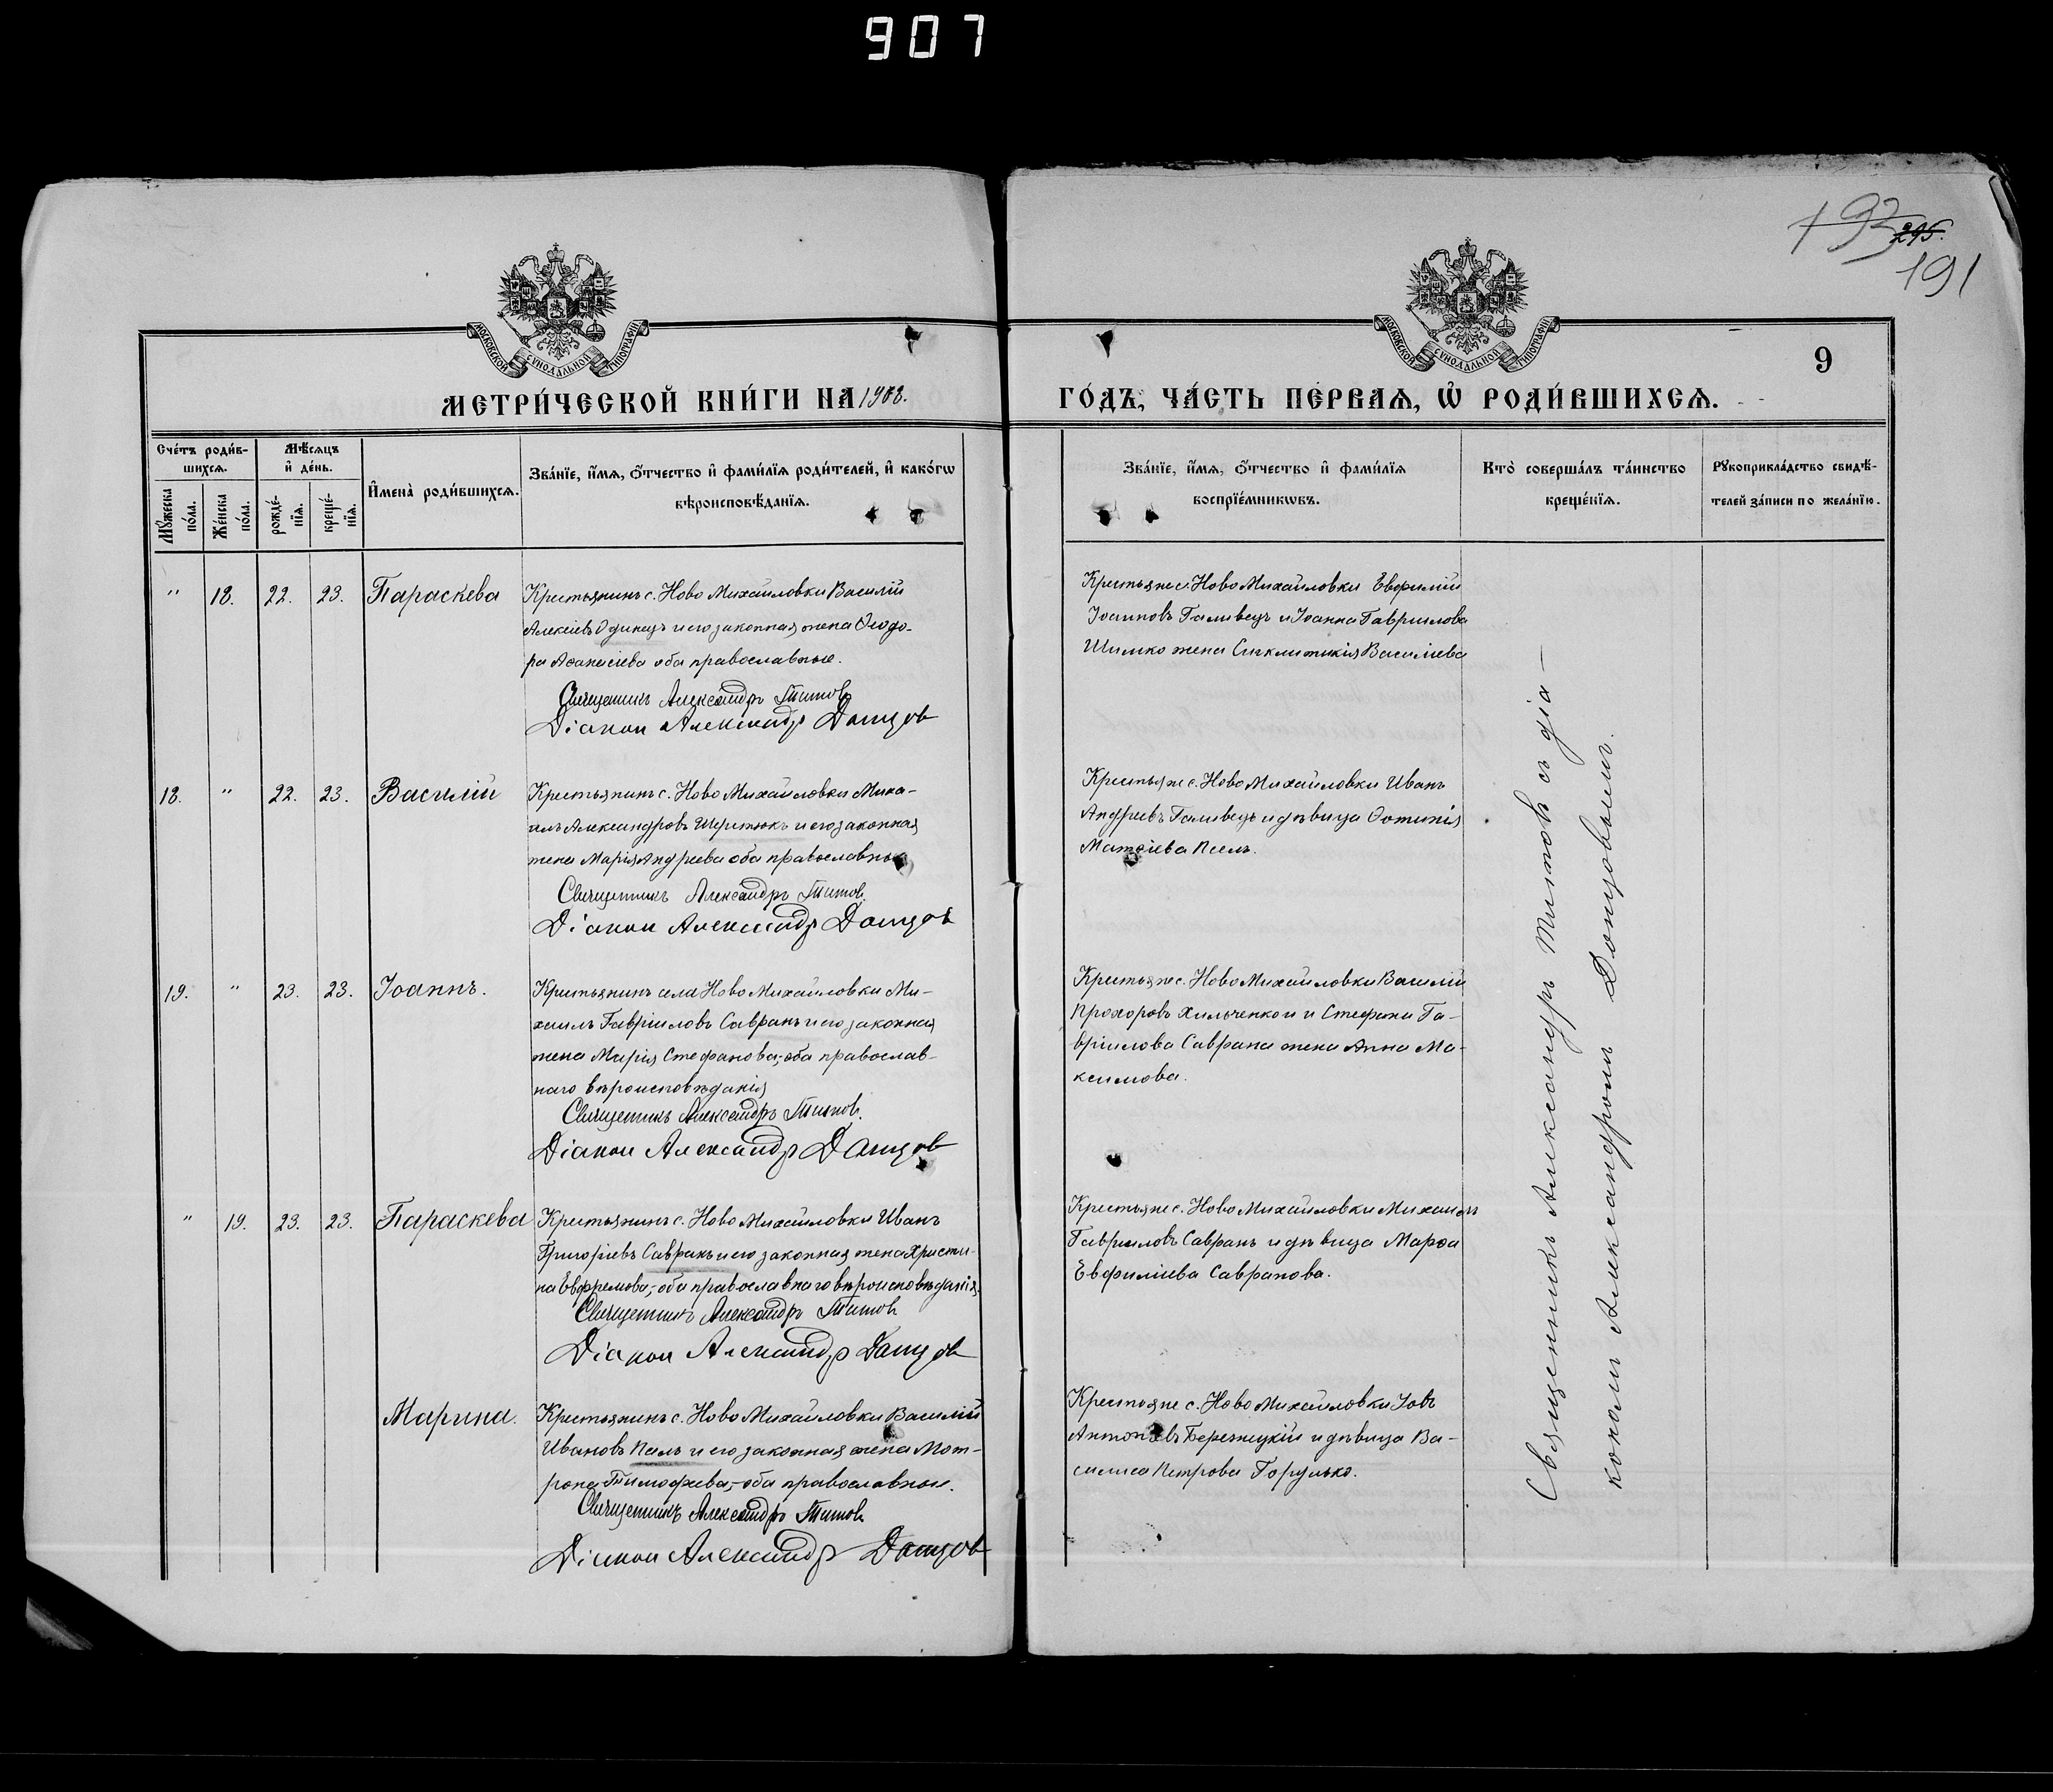 907
193
295.
191
МОСКОВСКОЙ СѴНОДАЛЬНОЙ ТИПОГРАФІИ
МОСКОВСКОЙ СѴНОДАЛЬНОЙ ТИПОГРАФІИ
9
МЕТРИ́ЧЕСКОЙ КНИ́ГИ НА 1908.
ГО́ДЪ, ЧА́СТЬ ПЕ́РВАѦ, Ѡ҆ РОДИ́ВШИХСѦ.
Сче́тъ роди́в-
шихсѧ.
Мꙋ́жеска по́ла.
Же́нска по́ла.
Мѣ́сѧцъ
и҆ де́нь.
рожде́-
нїѧ.
креще́-
нїѧ.
И҆мена̀ роди́вшихсѧ.
Зва́нїе, и҆́мѧ, ѻ҆́тчество и҆ фами́лїѧ роди́телей, и҆ како́гѡ
вѣроисповѣ́данїѧ.
Зва́нїе, и҆́мѧ, ѻ҆́тчество и҆ фами́лїѧ
воспрїе́мникѡвъ.
Кто̀ соверша́лъ та́инство
креще́нїѧ.
Рꙋкоприкла́дство свидѣ́-
телей за́писи по жела́нїю.
" 18. 22. 23. Параскева
Крестьянинъ с. Ново Михайловки Василій
Алексіевъ Одинецъ и его законная жена Ѳеодо-
ра Аѳанасіева оба православные.
Священникъ Александръ Титовъ
Діакон Александр Донцов
Крестьяне с. Ново Михайловки Евфимій
Іоанновъ Галивецъ и Іоанна Гавриилова
Шимко жена Синклитикія Василіева
18. " 22. 23. Василій
Крестьянинъ с. Ново Михайловки Миха-
илъ Александровъ Шеритюкъ и его законная
жена Марія Андреева оба православные
Священникъ Александръ Титовъ.
Діакон Александр Донцов
Крестьяне с. Ново Михайловки Иванъ
Андреевъ Галивецъ и дѣвица Ѳотинія
Матѳіева Псел.
19. " 23. 23. Іоаннъ.
Крестьянинъ села Ново Михайловки Ми-
хаилъ Гавріиловъ Савранъ и его законная
жена Марія Стефанова, оба православ-
наго вѣроисповѣданія
Священникъ Александръ Титовъ.
Діакон Александр Донцов
Крестьяне с. Ново Михайловки Василій
Прохоровъ Хильченко и Стефана Га-
вріилова Саврана жена Анна Ма-
ксимова.
" 19. 23. 23. Параскева
Крестьянинъ с. Ново Михайловки Иванъ
Григоріевъ Савранъ и его законная жена Христи-
на Евфремова, оба православнаго вѣроисповѣданія.
Священникъ Александръ Титовъ
Діакон Александр Донцов
Крестьяне с. Ново Михайловки Михаилъ
Гавриловъ Савранъ и дѣвица Марѳа
Евфиміева Савранова.
Марина.
Крестьянинъ с. Ново Михайловки Василій
Ивановъ Паль и его законная жена Мот-
рона Тимофеева, оба православные.
Священникъ Александръ Титовъ
Діакон Александр Донцов
Крестьяне с. Ново Михайловки Іовъ
Антоніевъ Бережецкій и дѣвица Ва-
силиса Петрова Горулько.
Священникъ Александръ Титовъ съ діа-
кономъ Александромъ Донцовымъ.